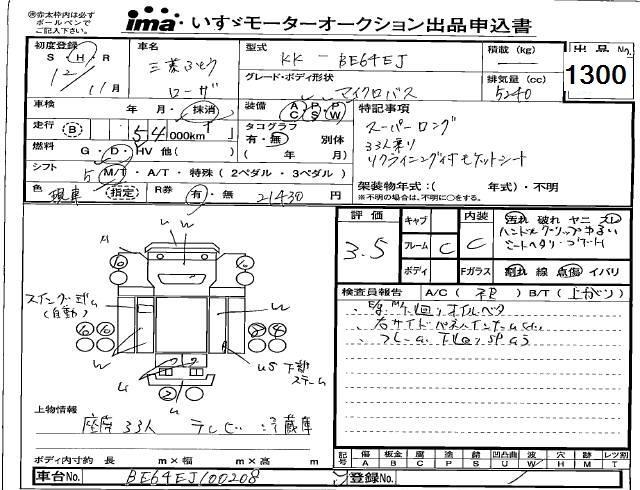 ※赤太枠内は必ず
ボールペンで
ご記入下さい。
ima いすゞモーターオークション出品申込書
初度登録
S・H・R
12/11月
車名
三菱ふそう
ローザ
型式
KK-BE64EJ
グレード・ボディ形状
マイクロバス
積載(kg)
排気量(cc)
5240
出品No.
1300
車検 年 月・抹消
走行 B 54 000km
燃料 G・D・HV 他( )
シフト 5 M/T・A/T・特殊(2ペダル・3ペダル)
色 現車 (指定) R券 有・無 21430 円
装備 AC PS PW
タコグラフ
有・無 別体
( 年 月)
特記事項
スーパーロング
33人乗り
リクライニング付モケットシート
架装物年式:( 年式)・不明
※不明の場合は、不明に○をする。
評価
3.5
キャブ
フレーム C
ボディ
内装 C
Fガラス
汚れ 破れ ヤニ スレ
ハンドルグリップゆるい
シートヘタリ・コゲ
割れ 線 点傷 イバリ
検査員報告 A/C( ) B/T( )
下回りオイルベタ
右サイドパネル
フレーム 下回りSPあり
スイング式ドア
(自動)
下部
スチーム
U
U
US
上物情報
座席33人 テレビ 冷蔵庫
ボディ内寸約 長 m×幅 m×高 m
記号 傷A 板金B 腐C 塗P 錆S 凹凸曲U 波W 穴H 跡M レツ別T
車台No. BE64EJ100208
登録No.